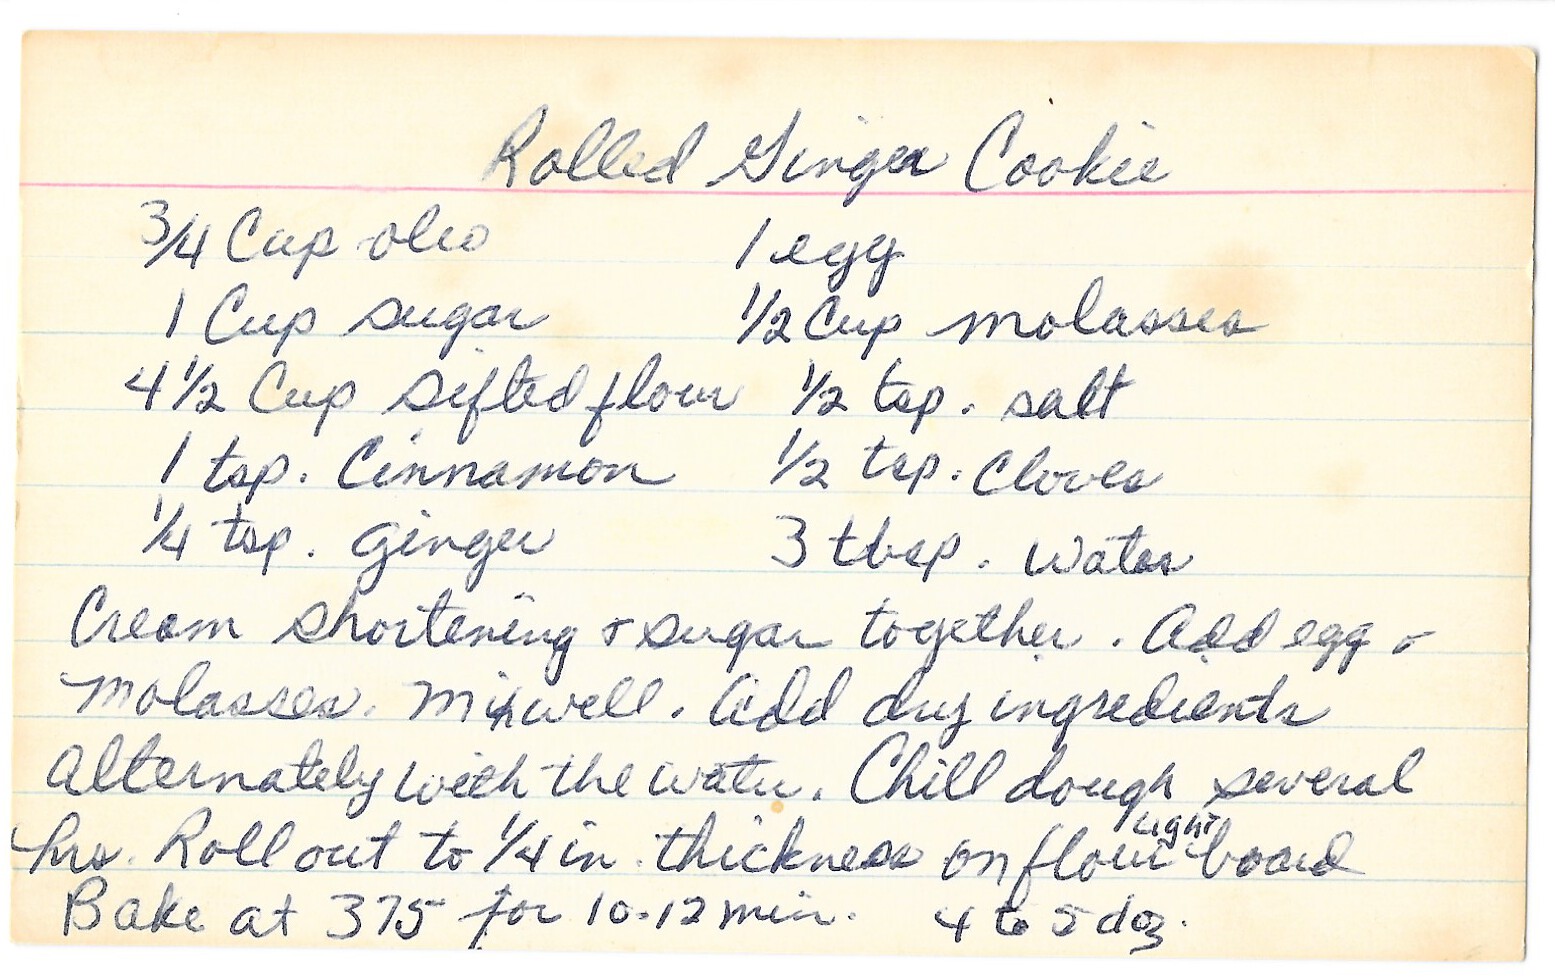 Rolled Ginger Cookie
3/4 Cup oleo 1 egg
1 Cup sugar 1/2 Cup molasses
4 1/2 Cup sifted flour 1/2 tsp. salt
1 tsp. Cinnamon 1/2 tsp. Cloves
1/4 tsp. ginger 3 tbsp. water
Cream shortening & sugar together. Add egg &
molasses. Mix well. Add dry ingredients
alternately with the water. Chill dough several
hrs. Roll out to 1/4 in. thickness on flour light board
Bake at 375 for 10-12 min. 4 to 5 doz.